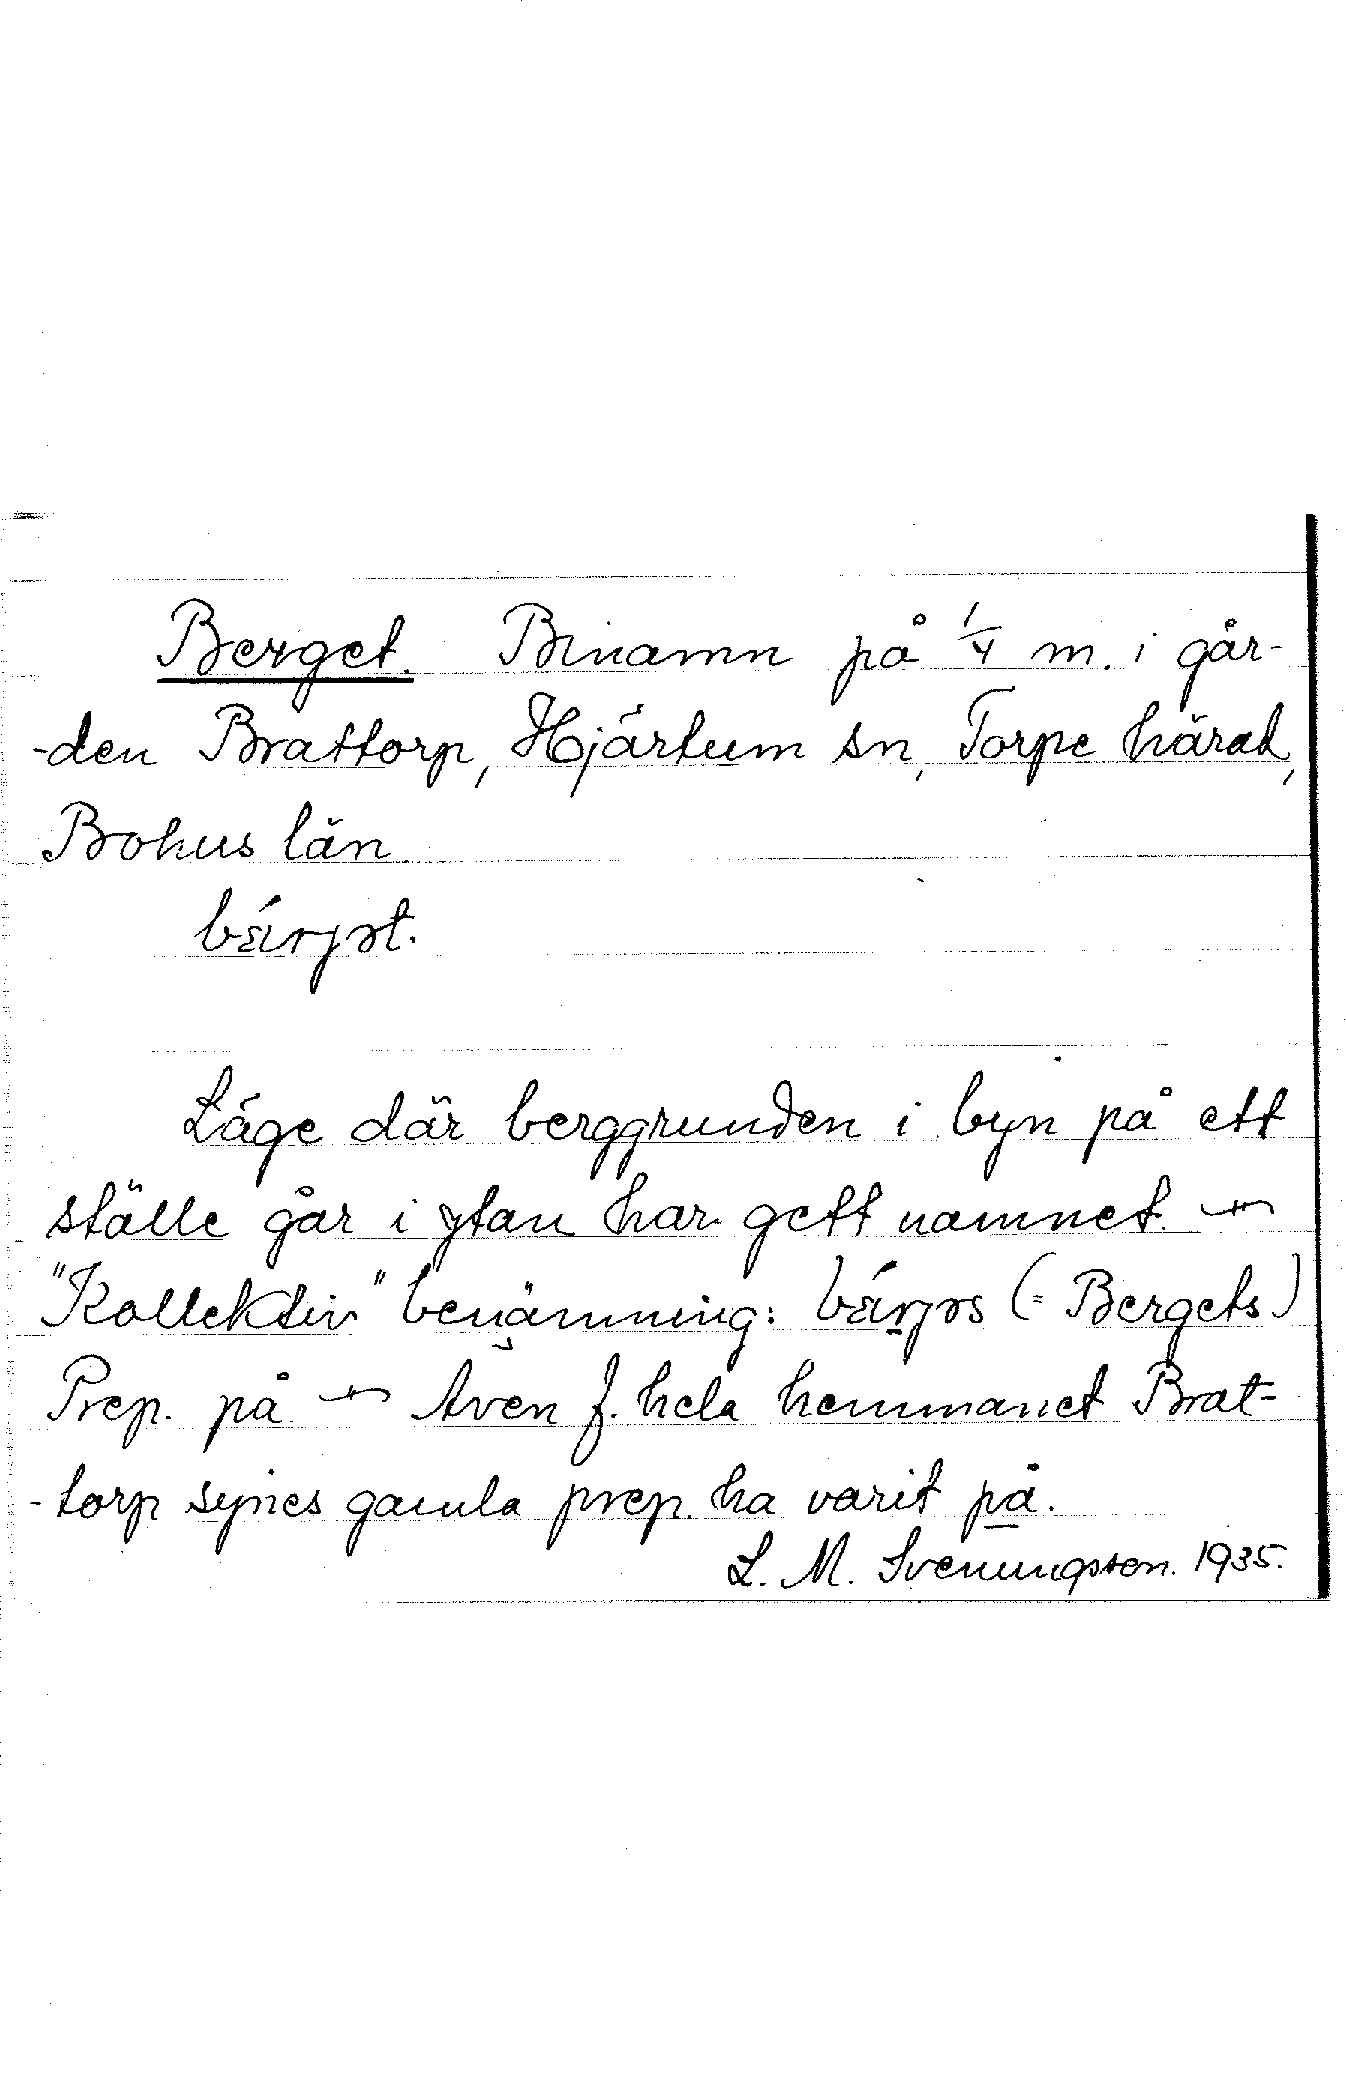 Berget. Binamn på 1/4 m. i går-
-den Brattorp, Hjärtum sn, Torpe härad,
Bohus län
bǽrjət.
Läge där berggrunden i byn på ett
ställe går i ytan har gett namnet. —
"Kollektiv" benämning: bǽrjəs (= Bergets)
Prep. på — Även f. hela hemmanet Brat-
-torp synes gamla prep. ha varit på.
L. M. Svenungsson. 1935.